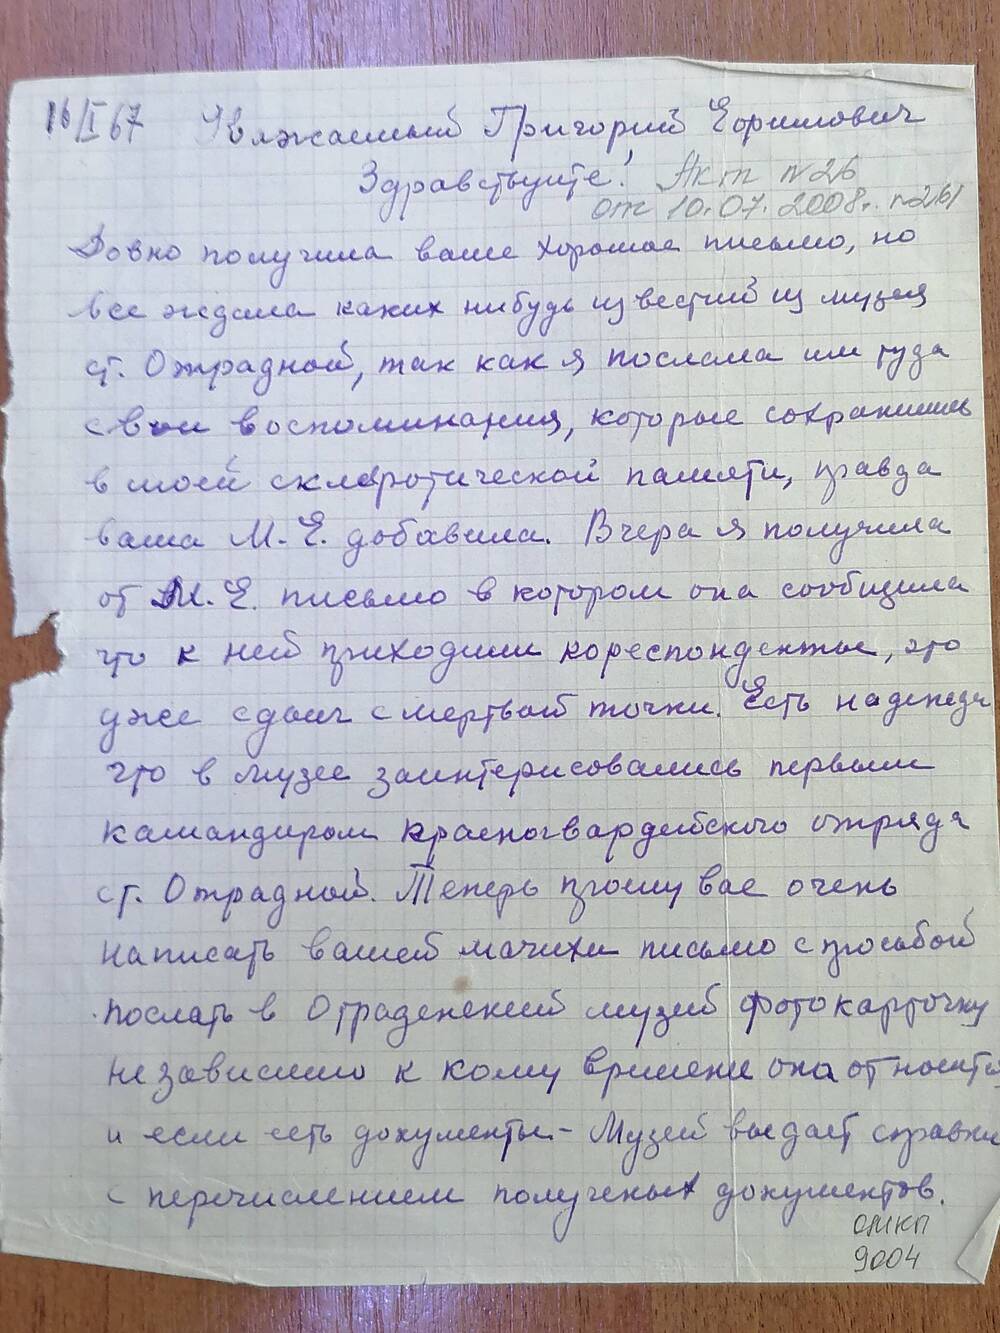 16/I 67 Уважаемый Григорий Ефимович
Здравствуйте! Акт №26
от 10.07.2008г. №261
Довно получила ваше хорошое письмо, но
все ждала каких нибудь известий из музея
ст. Отрадной, так как я послала им туда
свои воспоминания, которые сохранились
в моей склеротической памяти, правда
ваша М.Е. добавила. Вчера я получила
от М.Е. письмо в котором она сообщила
что к ней приходили кореспонденты, это
уже сдвиг с мертвой точки. Есть надежда
что в музее заинтерисовались первым
командиром красногвардейского отряда
ст. Отрадной. Теперь прошу вас очень
написать вашей мачихи письмо с просьбой
послать в Отраденский музей фотокарточку
независимо к кому времени она относится
и если есть документы - Музей выдает справки
с перечислением полученых документов.
ОМКП
9004